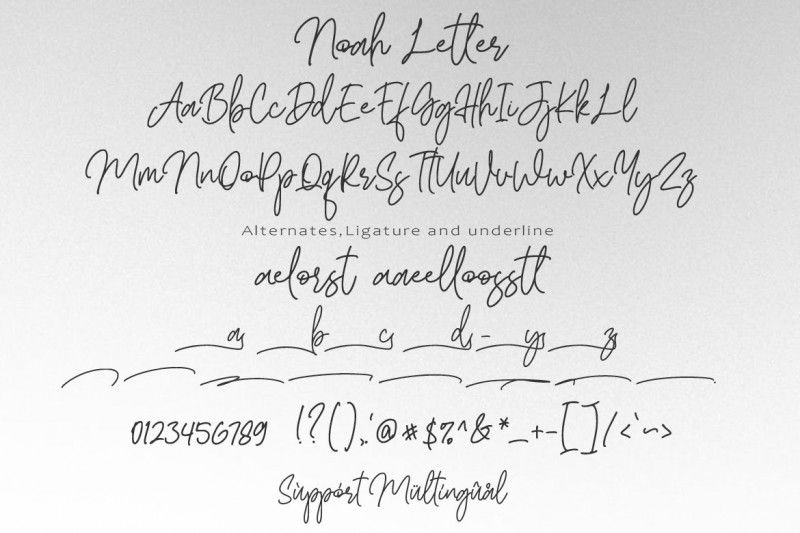 Noah Letter
AaBbCcDdEeFfGgHhIiJjKkLl
MmNnOoPpQqRrSsTtUuVvWwXxYyZz
Alternates,Ligature and underline
aelorst aaeelloosstt
a b c d - y z
0123456789 !?().,'@#$%^&*_+-[]/<`~>
Sùppórt Mültingûål